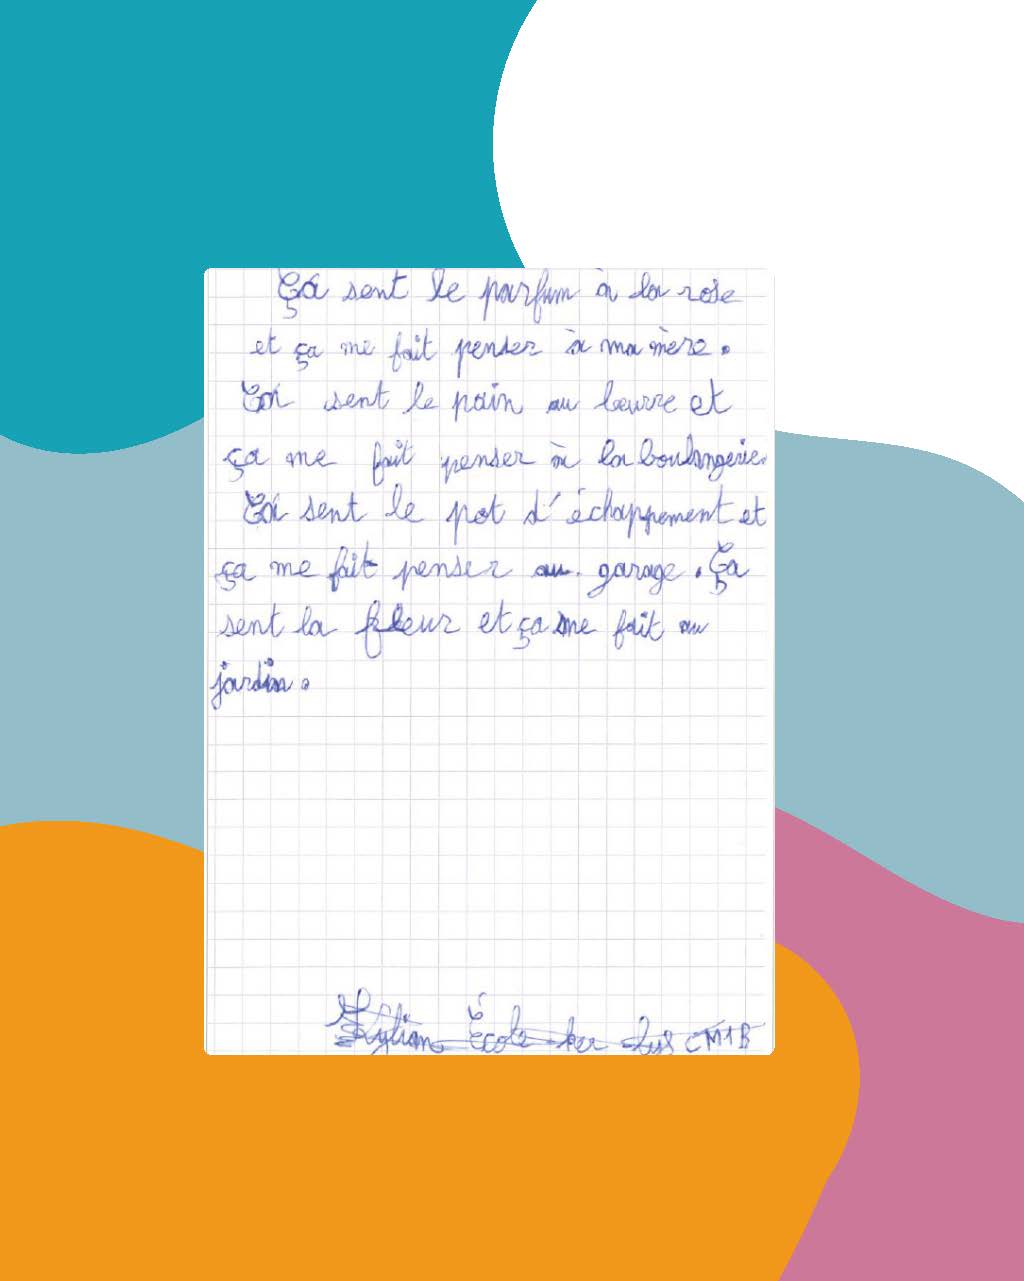 Ça sent le parfum à la rose
et ça me fait penser à ma mère.
Ça sent le pain au beurre et
ça me fait penser à la boulangerie.
Ça sent le pot d'échappement et
ça me fait penser au garage. Ça
sent la fleur et ça me fait au
jardin.
École CM1B